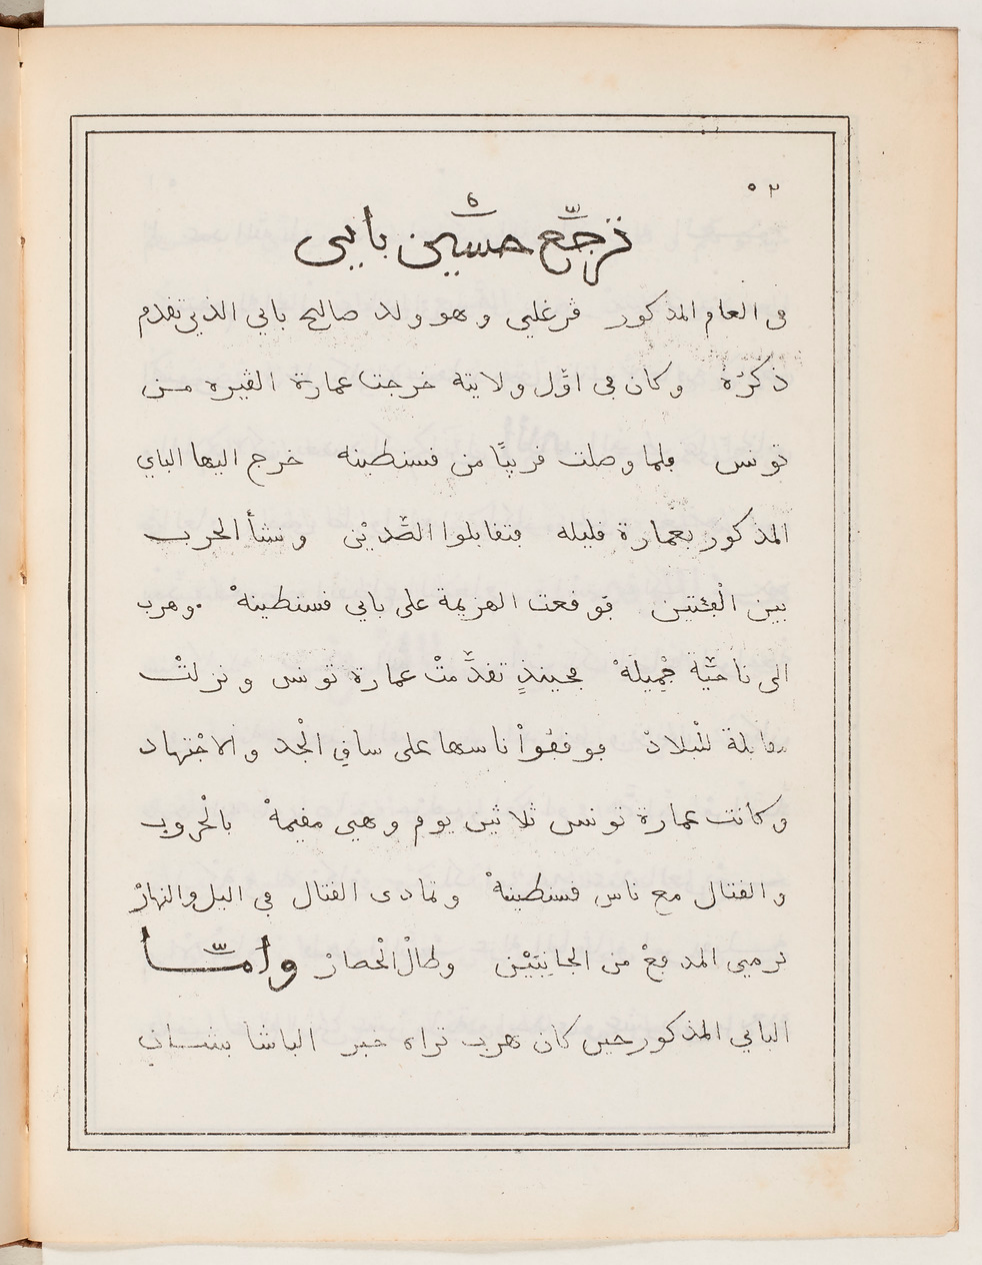 ٢٥
ترجّع حسّين بايى
في العام المذكور فرغلي وهو ولد صاليح بايي الذي تقدم
ذكرُهُ وكان في اوّل ولايته خرجت عمارة الڨيره من
تونس فلما وصلت قريبًا من قسنطينه خرج اليها الباي
المذكور بعمارة قليله فتقابلوا الضّدين ونشأ الحرب
بين الْفئتين فوقعت الهزيمة على بايي قسنطينهْ وهرب
الى ناحيّة جْميلهْ فحينئذٍ تقدّمتْ عمارة تونس ونزلتْ
مقابلة للْبلادْ فوقفواْ ناسها على ساقِ الْجد والاجْتهاد
وكانت عمارة تونس ثلاثين يوم وهي مقيمهْ بالْحروب
والقتال مع ناس قسنطينهْ وتمادى القتال في اليل والنهارْ
ترمي المدفعْ من الجانبيْن وطالْ الْحصارْ وامّا
البايي المذكور حين كان هرب تراه خبر الباشا بشان